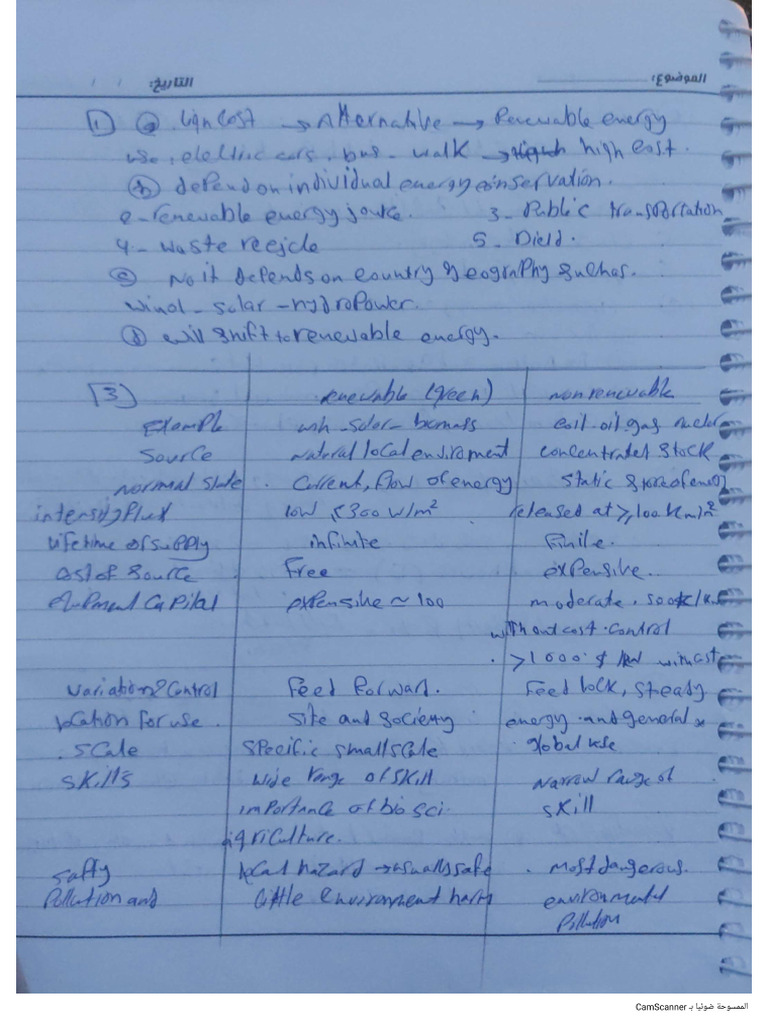 الموضوع: التاريخ:
1 a High Cost → Alternative → Renewable energy
use electric cars, bus - walk → high cost.
b depend on individual energy conservation.
2 - renewable energy 3 - Public transportation
4 - waste recycle 5 -
c No it depends on country geography such as.
wind - solar - hydropower.
d will shift to renewable energy.
[3] renewable (green) nonrenewable
Example solar - biomass oil. gas
Source natural local enviroment concentrated stock
normal state . Current, flow of energy static store of energy
intensity flux low ≤300 W/m² released at ≥100 Km/m²
Lifetime of supply infinite Finite.
Cost of source Free expensive.
Capital expensive ~ 100 moderate.
without cost control
. >1000 $
Variation & Control Feed forward. Feed back, steady
location for use . Site and Society energy and general
. scale specific small scale global use
skills wide range of skill narrow range of
importance of bio sci. skill
agriculture.
safty local hazard → usually safe . most dangerous.
Pollution and little environment harm environmental
Pollution
الممسوحة ضوئيا بـ CamScanner